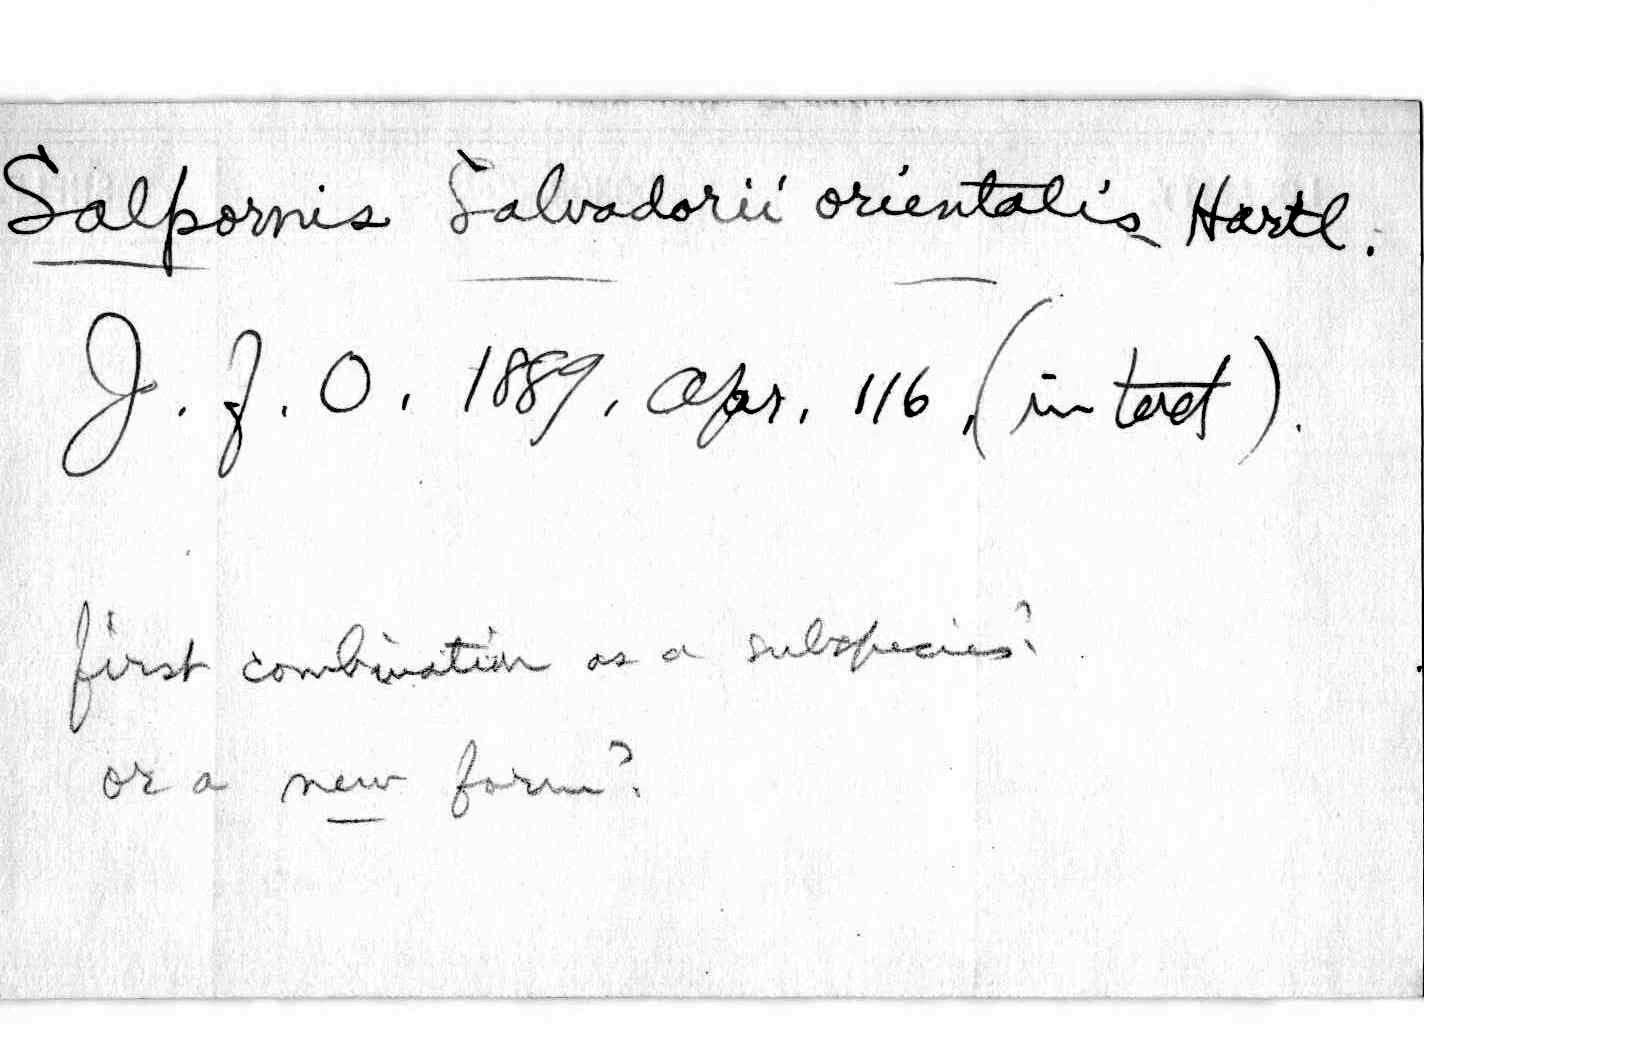 Salpornis Salvadorii orientalis Hartl.
J. f. O. 1889, Apr. 116, (in text).
first combination as a subspecies?
or a new form?